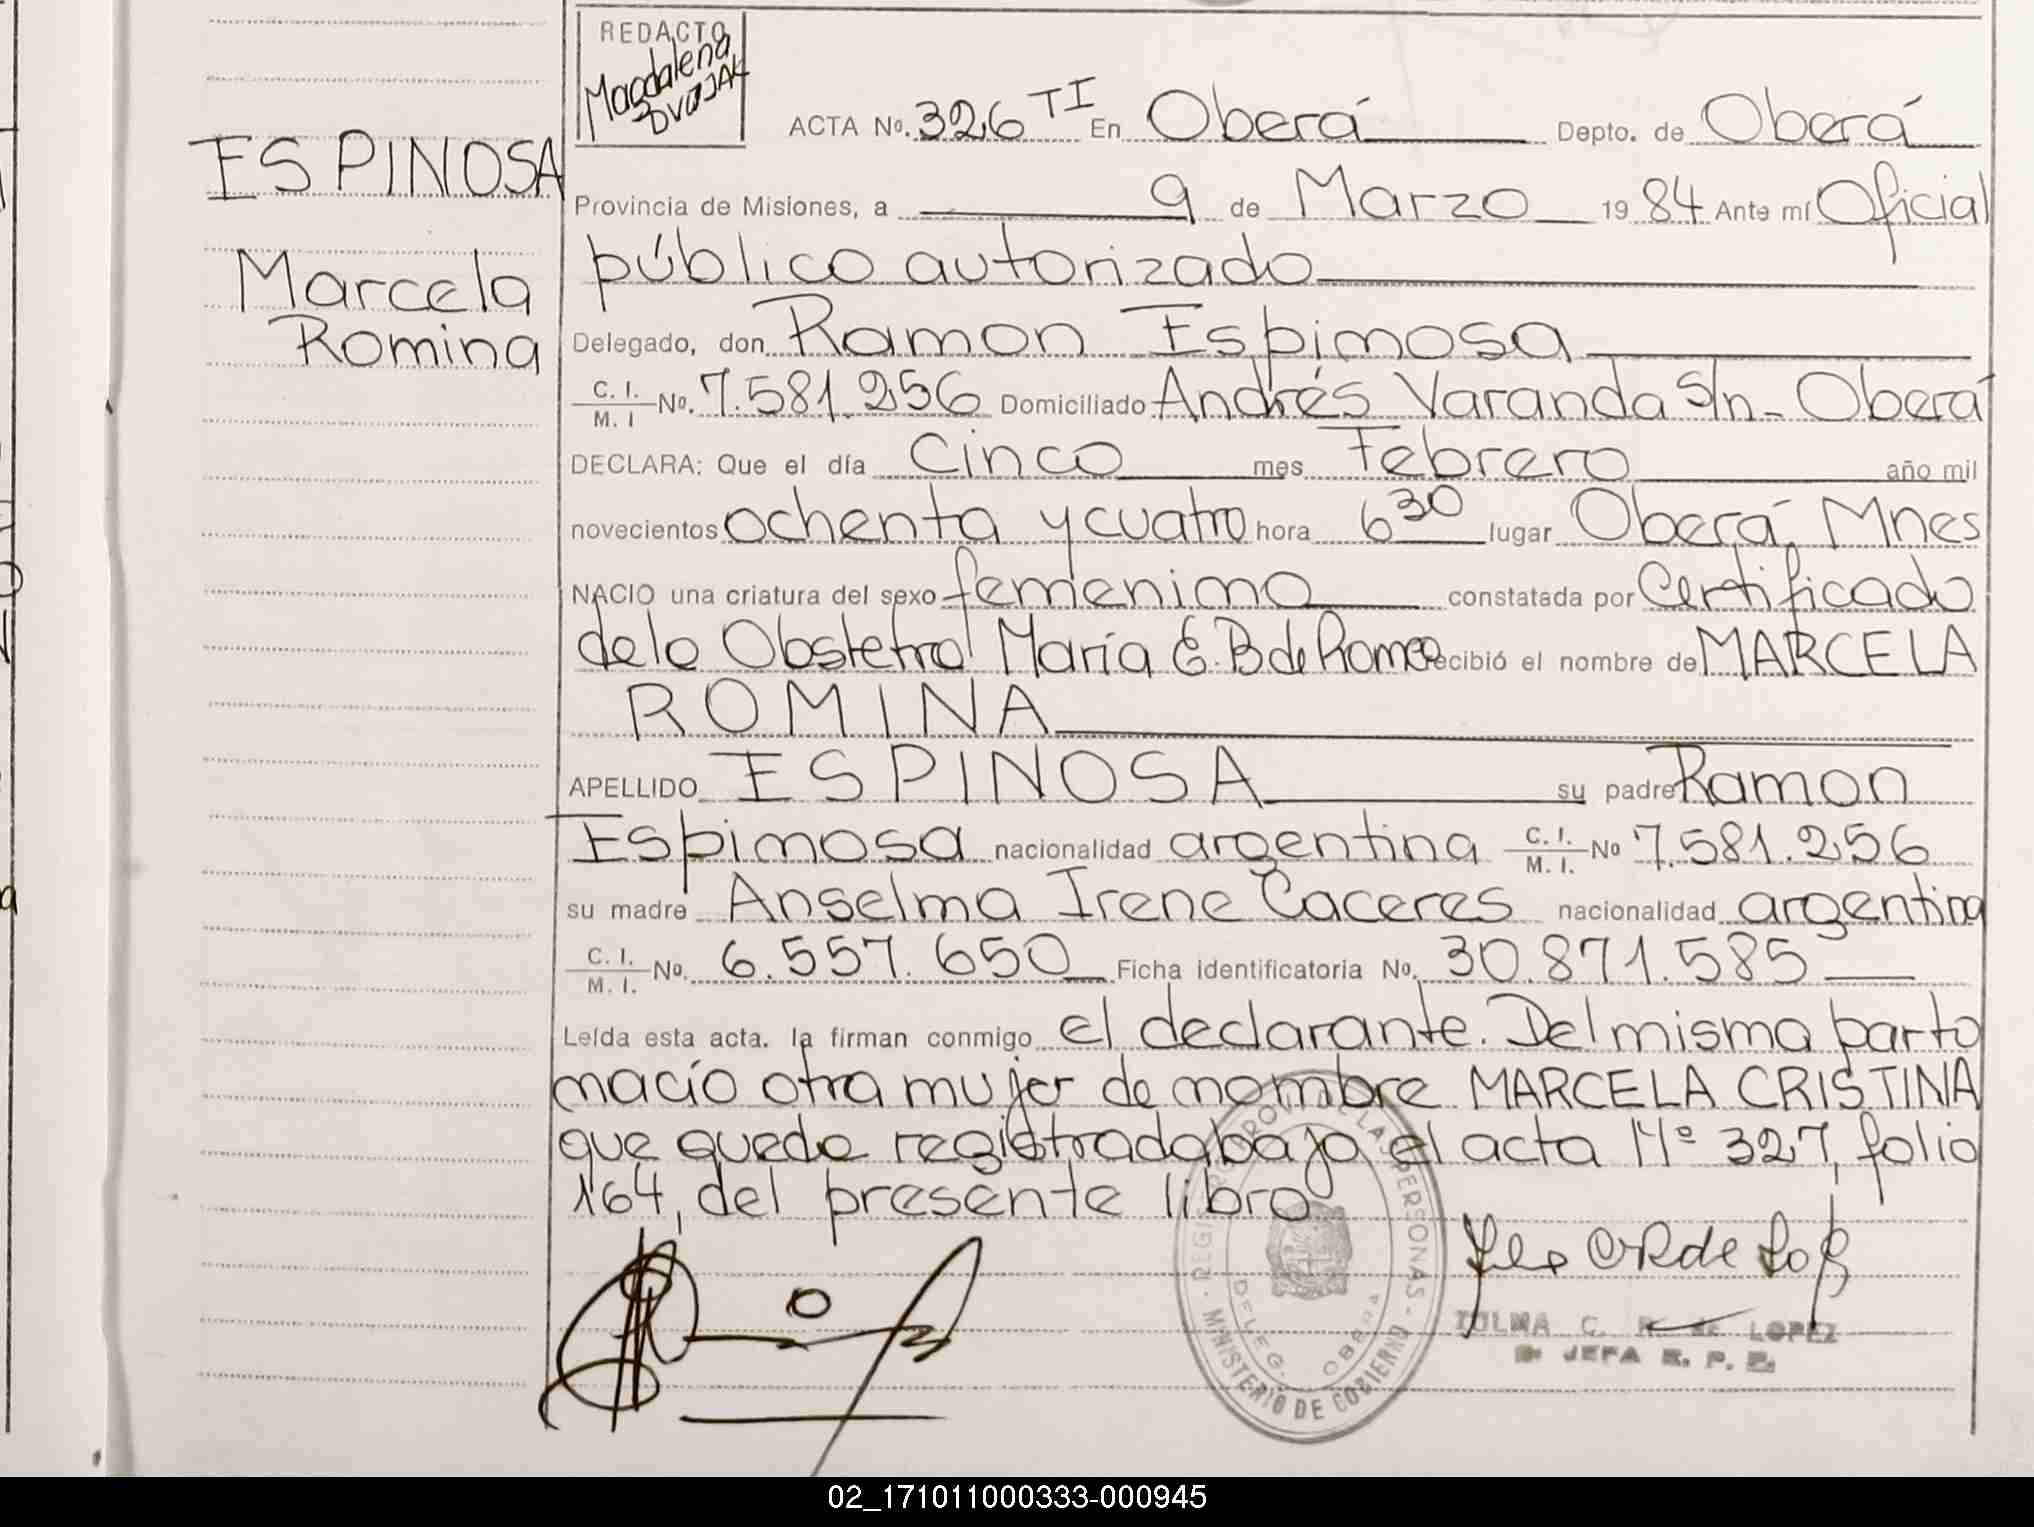 REDACTO
Magdalena
DVOJAK
ACTA Nº. 326 TI En Oberá Depto. de Oberá
ESPINOSA
Provincia de Misiones, a 9 de Marzo 1984 Ante mí Oficial
público autorizado
Marcela
Romina
Delegado, don Ramon Espinosa
C. I. / M. I Nº. 7.581.256 Domiciliado Andrés Varanda s/n - Oberá
DECLARA: Que el día cinco mes Febrero año mil
novecientos ochenta y cuatro hora 6 30 lugar Oberá, Mnes
NACIO una criatura del sexo femenino constatada por Certificado
de la Obstetra María E. B de Romeo recibió el nombre de MARCELA
ROMINA
APELLIDO ESPINOSA su padre Ramon
Espinosa nacionalidad argentina C. I. / M. I. Nº 7.581.256
su madre Anselma Irene Caceres nacionalidad argentina
C. I. / M. I. Nº. 6.557.650 Ficha identificatoria Nº. 30.871.585
Leída esta acta. la firman conmigo el declarante. Del mismo parto
nacío otra mujer de nombre MARCELA CRISTINA
que queda registrada bajo el acta Nº 327, folio
164, del presente libro
DELEG. OBERA
MINISTERIO DE GOBIERNO
C. R. de LOPEZ
JEFA R. P. P.
02_171011000333-000945